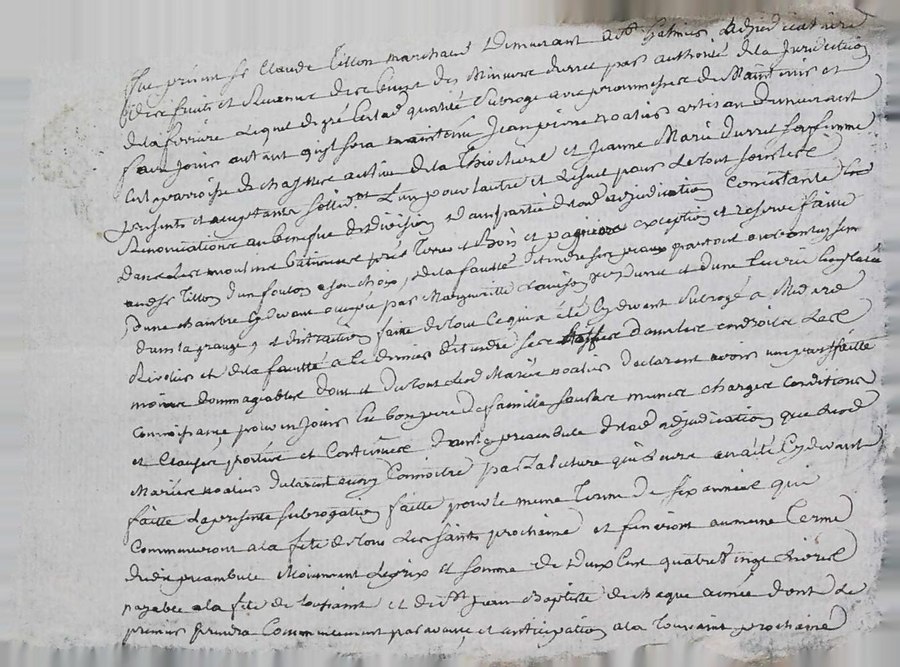 Fut présent Sr Claude Tillon marchand demeurant a St Galmier adjudicataire
Des fruits et Revenus des biens des Mineurs durret pas authorité de la Juridiction
de la foriere Lequel de gré Certad qualité Subroge avec promesses de Maintenir et
faire Jouir autant quil sera maintenu Jeanpierre noalies artisan demeurant
En la parroisse de Chastre et Jeanne Marie durret sa femme
presents et acceptants sollidt Lun pour lautre et Lesuel pour Letout sous les
Renonciations au benefice de Division dans partie de lad adjudication Consistante
dans Les moulins batiments prés Terres et bois et paquiers exception et reserve faite
aud Sr tillon dun foulon a son choix et de la faculté detendre ses peaux partout
dune chambre Cydevant occupée par Margueritte et dune
dans la grange, et distraction faite de tout Ce qui a été Cydevant Subrogé a Médard
Rivolier et de la faculté a Ce dernier détendre ses dans les endroits Les
moins dommageables dont et du tout Lesd Mariés noalies declarent avoir une parfaitte
Connoissance pour en Jouir En bon pere de famille sous les memes charges Conditions
et Clauses portées et Contenues dans Le preambule de lad adjudication que Lesd
Mariés noalies declarent avoir Connoitre par La lecture qui Leur en a été Cydevant
faitte La presente Subrogation faitte pour le meme Terme de six années qui
Commenceront a la fete de tous Les Saints prochaine et finiront au meme Terme
dudit preambule Moienant Le prix et somme de Deux Cent quatre vingt Livres
payable a la fete de toussaint et de St Jean Baptiste de chaque année dont Le
premier prendra Commencement par avance et anticipation a la Toussaint prochaine